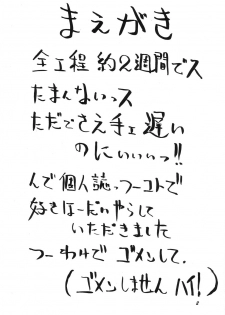 まえがき
全工程 約2週間でス
たまんないっス
ただでさえ手ェ遅い
のにぃぃぃっ!!
んで個人誌っつーコトで
好きほーだいやらして
いただきました
つーわけで ゴメンして。
(ゴメンしません ハイ!)